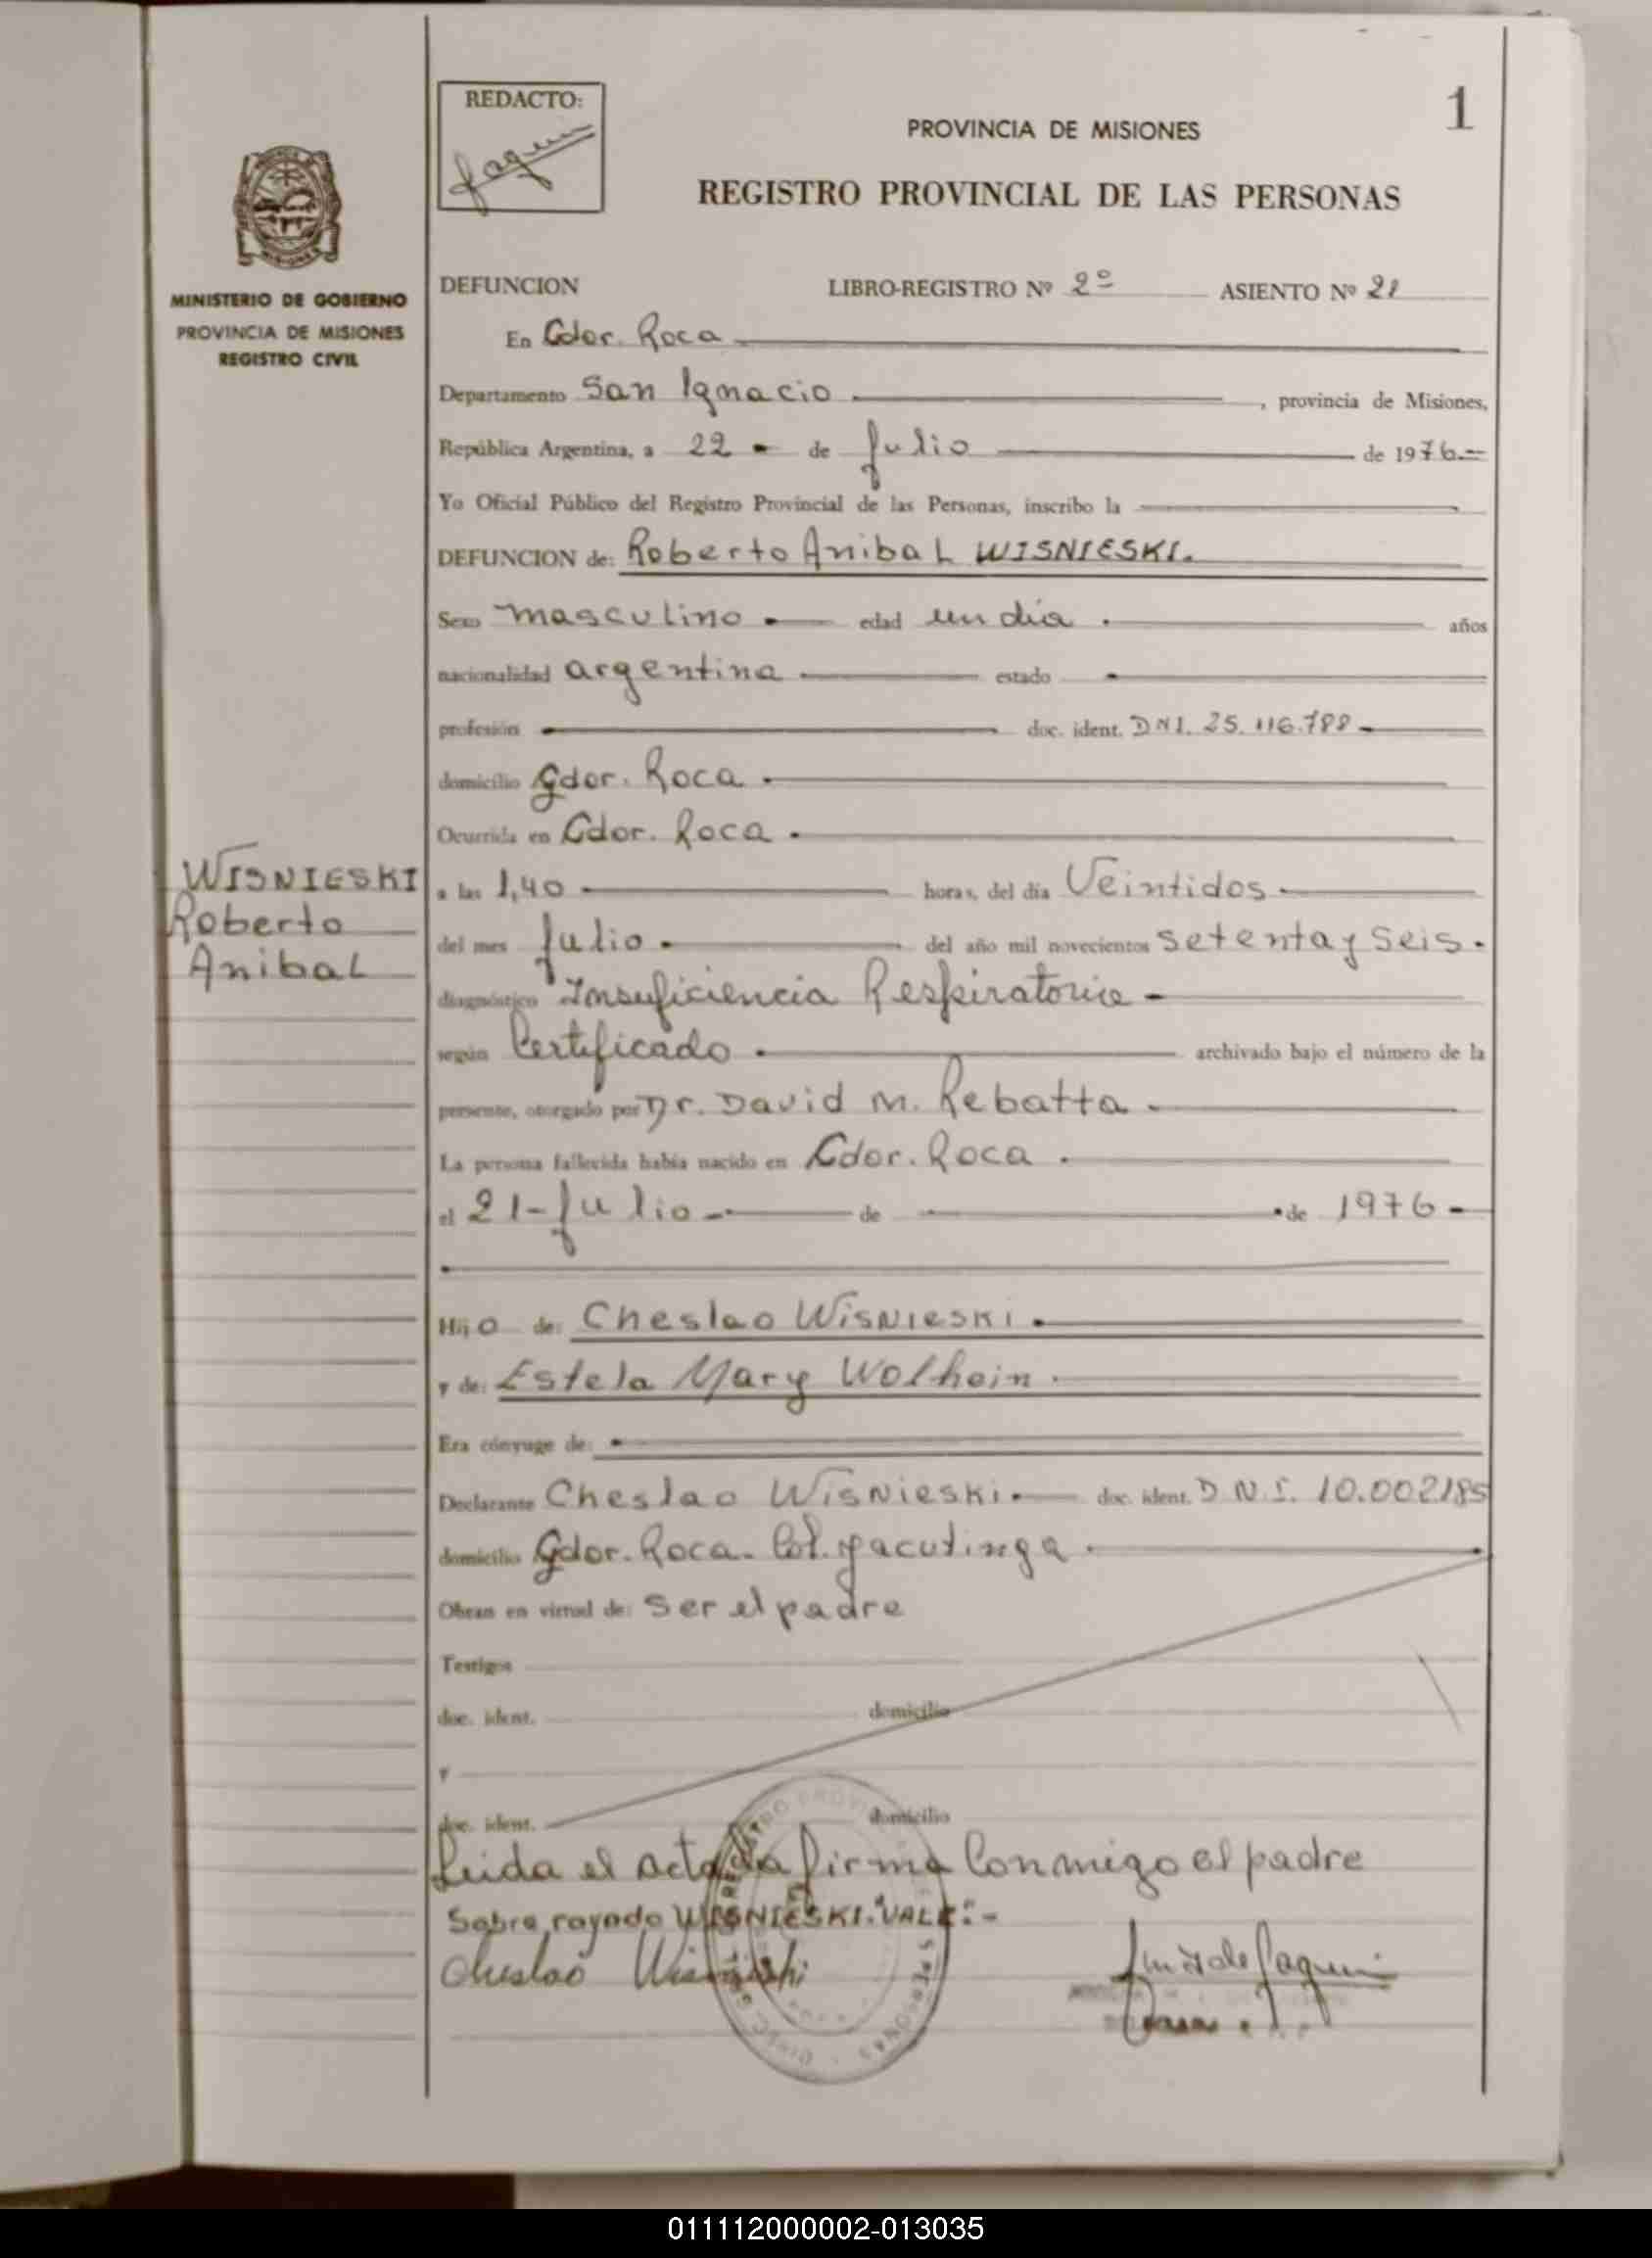 1
REDACTO:
PROVINCIA DE MISIONES
REGISTRO PROVINCIAL DE LAS PERSONAS
MINISTERIO DE GOBIERNO
PROVINCIA DE MISIONES
REGISTRO CIVIL
DEFUNCION LIBRO-REGISTRO Nº 2º ASIENTO Nº 21
En Gdor. Roca
Departamento San Ignacio, provincia de Misiones,
República Argentina, a 22 de Julio de 1976
Yo Oficial Público del Registro Provincial de las Personas, inscribo la
DEFUNCION de: Roberto Anibal WISNIESKI.
Sexo masculino edad un día años
nacionalidad argentina estado
profesión doc. ident. DNI. 25.116.788
domicilio Gdor. Roca
Ocurrida en Gdor. Roca
WISNIESKI
Roberto
Anibal
a las 1,40 horas, del día Veintidos
del mes Julio del año mil novecientos setenta y seis.
diagnóstico Insuficiencia Respiratoria
según Certificado archivado bajo el número de la
presente, otorgado por Dr. David M. Rebatta
La persona fallecida había nacido en Gdor. Roca
el 21-Julio de de 1976
Hijo de: Cheslao Wisnieski
y de: Estela Mary Wolhein
Era cónyuge de:
Declarante Cheslao Wisnieski doc. ident. D.N.I. 10.002185
domicilio Gdor. Roca. Col. yacutinga
Obran en virtud de: Ser el padre
Testigos
doc. ident. domicilio
y
doc. ident. domicilio
Leida el acta la firma Conmigo el padre
Sobre rayado WISNIESKI. "VALE":-
Cheslao Wisnieski
011112000002-013035